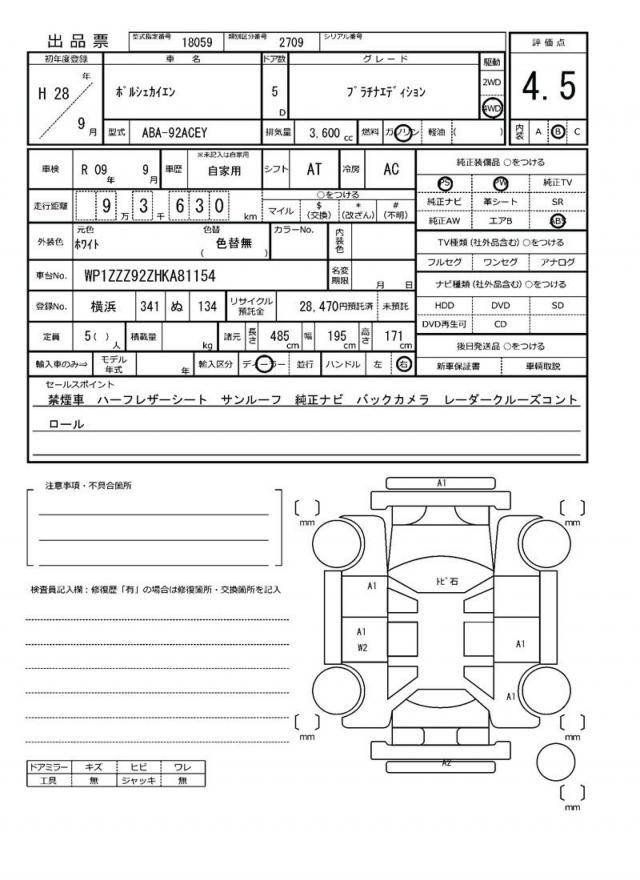 出品票 型式指定番号 18059 類別区分番号 2709 シリアル番号
評価点
初年度登録 車名 ドア数 グレード 駆動
H 28 年 9月 ポルシェカイエン 5 D プラチナエディション 2WD 4WD
4.5
型式 ABA-92ACEY 排気量 3,600 cc 燃料 ガソリン 軽油 ( ) 内装 A B C
車検 R 09年 9月 車歴 ※未記入は自家用 自家用 シフト AT 冷房 AC
純正装備品 ○をつける
PS PW 純正TV
純正ナビ 革シート SR
純正AW エアB ABS
走行距離 9万3千630 km
○をつける
マイル $(交換) *(改ざん) #(不明)
外装色 元色 ホワイト 色替 (色替無) カラーNo. 内装色
TV種類 (社外品含む) ○をつける
フルセグ ワンセグ アナログ
車台No. WP1ZZZ92ZHKA81154 名変期限 月 日
ナビ種類 (社外品含む) ○をつける
HDD DVD SD
DVD再生可 CD
登録No. 横浜 341 ぬ 134 リサイクル預託金 28,470円預託済 未預託
定員 5( )人 積載量 kg 諸元 長さ 485cm 幅 195cm 高さ 171cm
後日発送品 ○をつける
新車保証書 車輌取説
輸入車のみ⇒ モデル年式 年 輸入区分 ディーラー 並行 ハンドル 左 右
セールスポイント
禁煙車 ハーフレザーシート サンルーフ 純正ナビ バックカメラ レーダークルーズコント
ロール
注意事項・不具合箇所
検査員記入欄:修復歴「有」の場合は修復箇所・交換箇所を記入
A1
mm
mm
トビ石
A1
A1
W2
A1
A1
mm
mm
A2
mm
ドアミラー キズ ヒビ ワレ
工具 無 ジャッキ 無